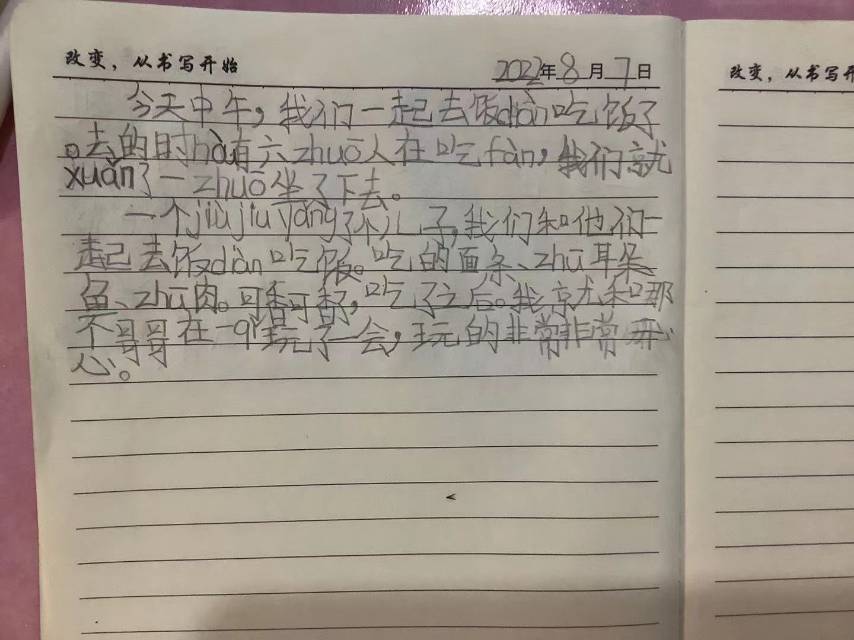 改变，从书写开始
2022年8月7日
今天中午，我们一起去饭diàn吃饭了
。去的时hòu有六zhuō人在吃fàn，我们就
xuǎn了一zhuō坐了下去。
一个jiù jiu yǎng了个儿子，我们和他们一
起己去饭diàn吃饭。吃的面条、zhū耳朵、
鱼、zhū肉。可香可香了，吃了之后。我就和那
个哥哥在一qǐ玩了一会，玩的非常非常开心
心。
改变，从书写开